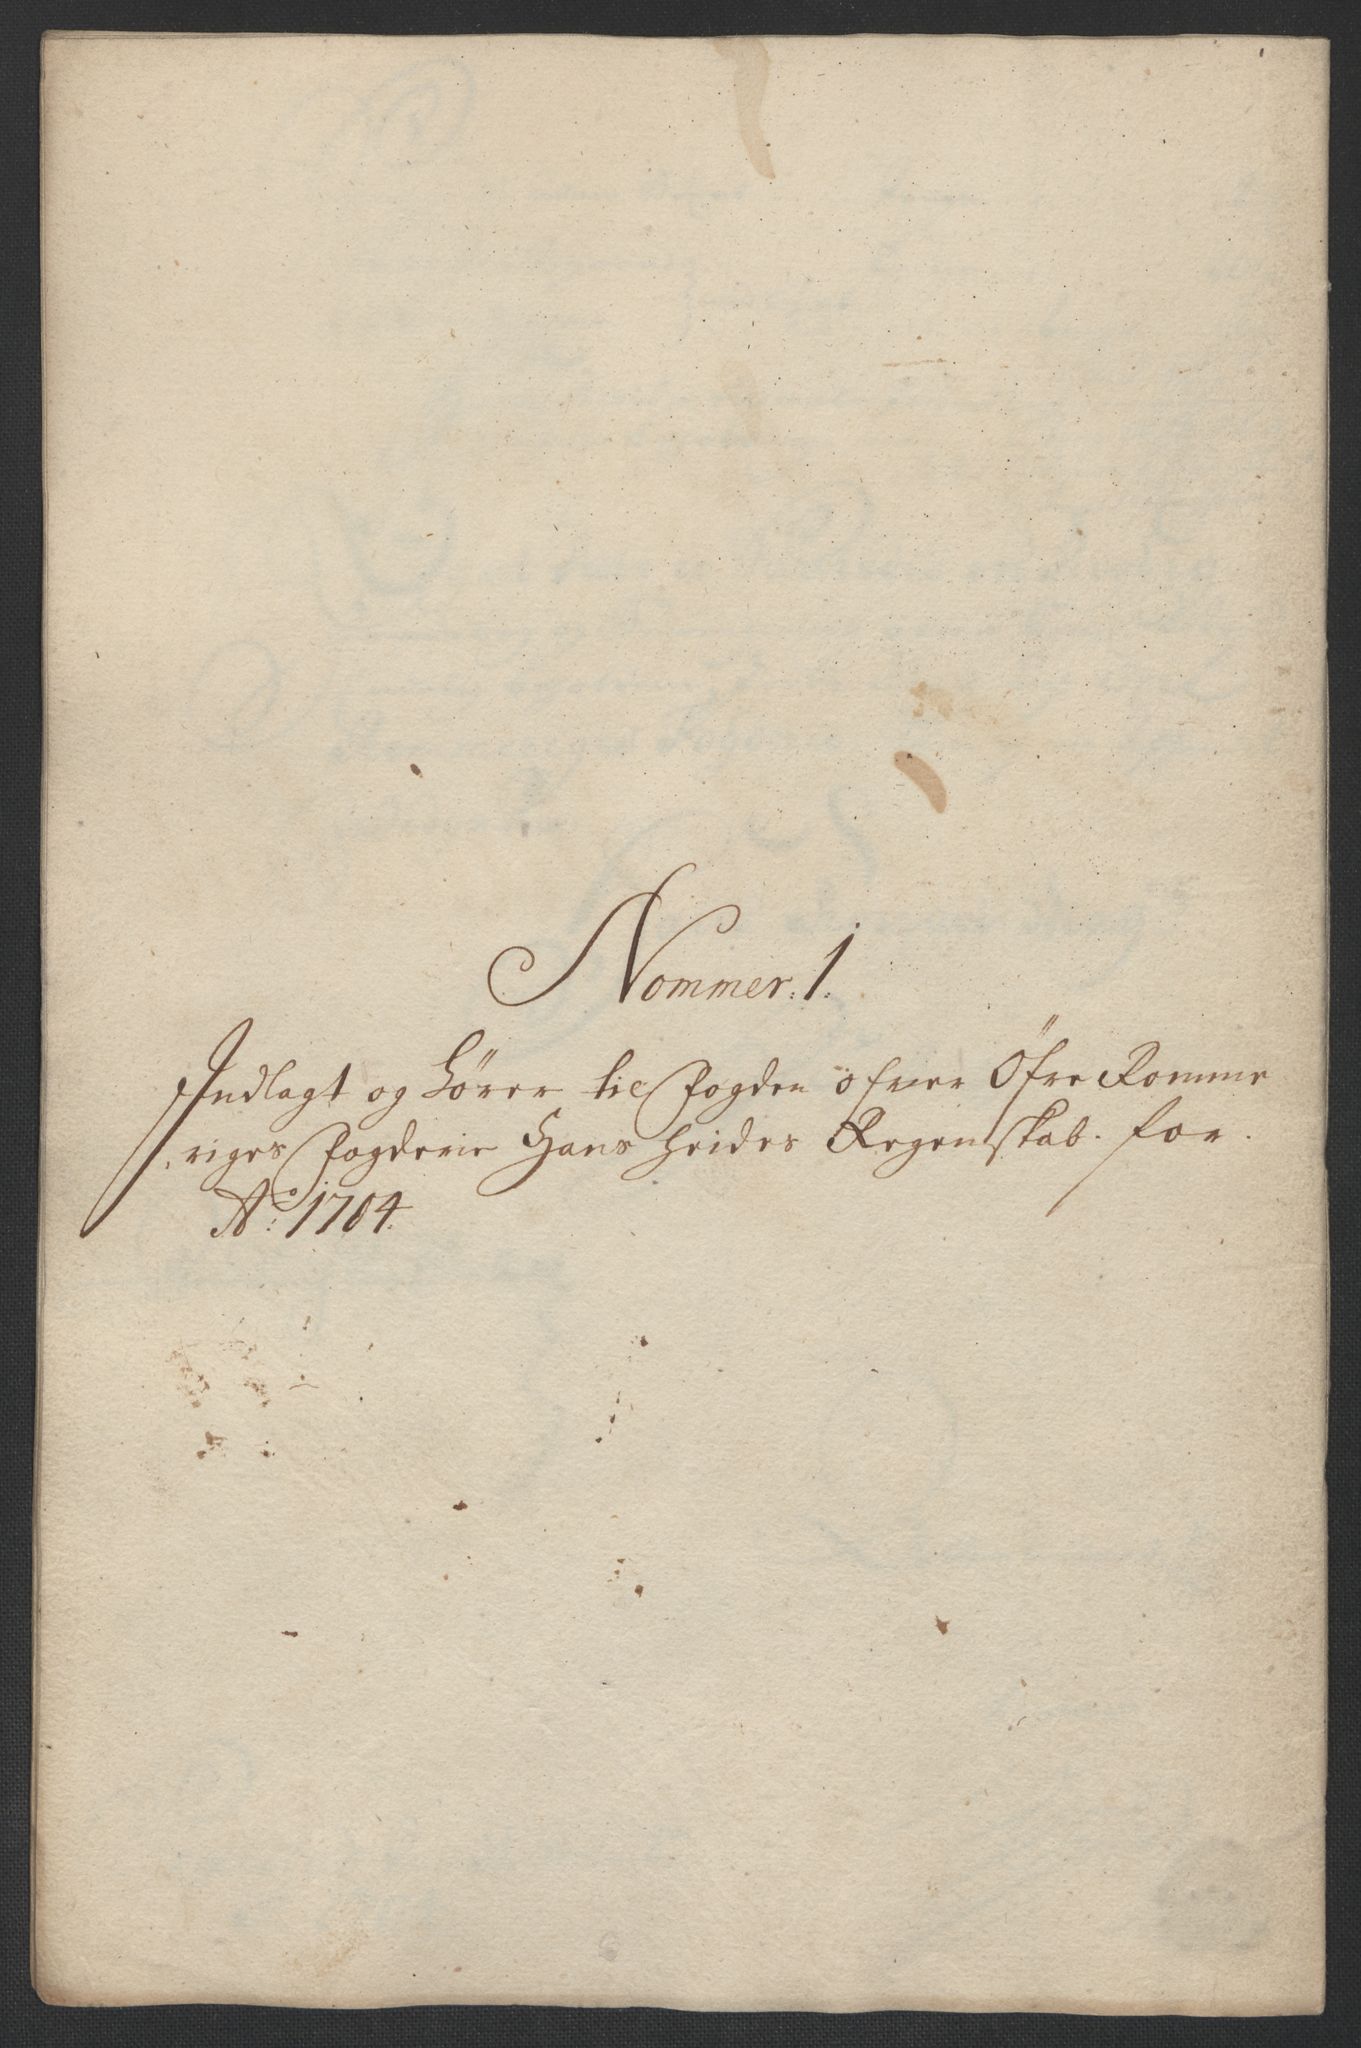 Nommer. 1.
Indlagt og hörer til Fogden ofver Öfre Romme
riges Fogderie Hans Heides Regenskab. for.
Ao: 1704.